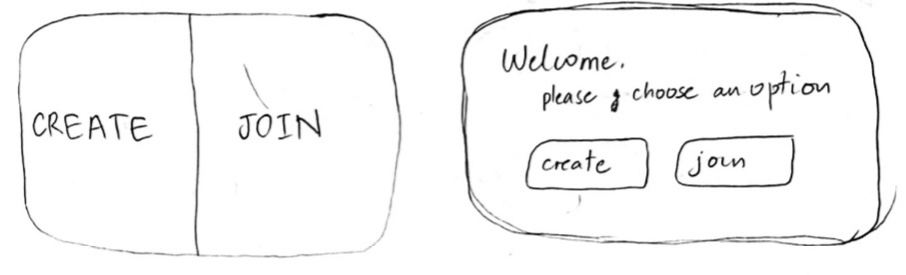 CREATE
JOIN
Welcome.
please choose an option
create
join